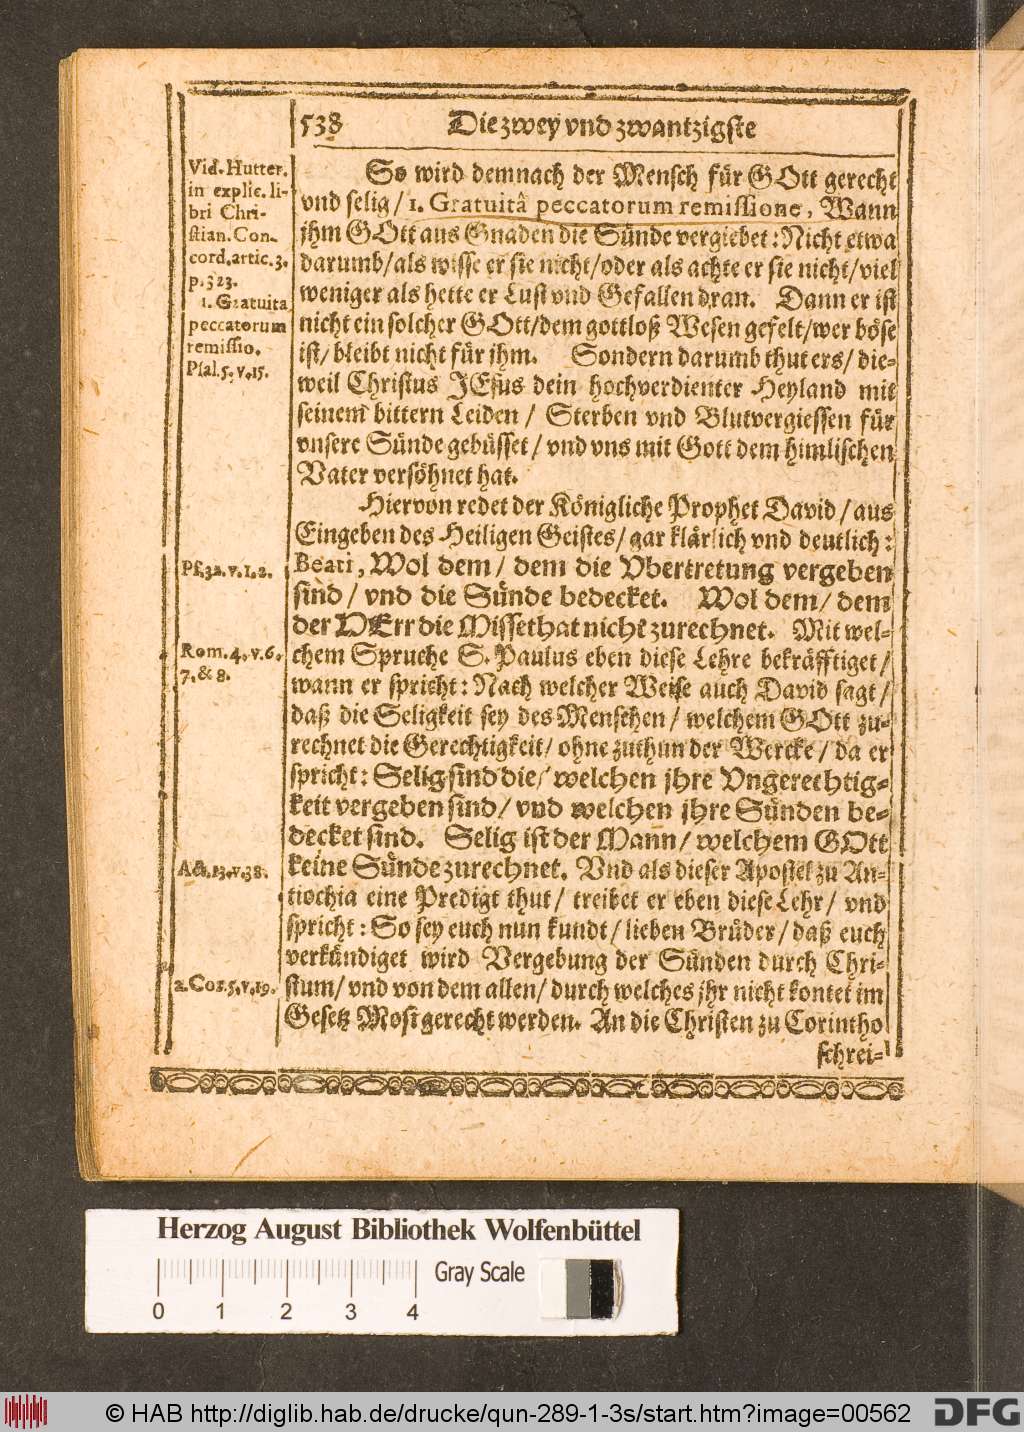 538 Die zwey vnd zwantzigste
Vid. Hutter.
in explic. li-
bri Chri-
stian. Con-
cord. artic. 3.
p. 323.
1. Gratuita
peccatorum
remissio.
Psal. 5. v. 15.
So wird demnach der Mensch für GOtt gerecht
vnd selig / 1. Gratuitâ peccatorum remissione, Wann
jhm GOtt aus Gnaden die Sünde vergiebet: Nicht etwa
darumb / als wisse er sie nicht / oder als achte er sie nicht / viel
weniger als hette er Lust vnd Gefallen dran. Dann er ist
nicht ein solcher GOtt / dem gottloß Wesen gefelt / wer böse
ist / bleibt nicht für jhm. Sondern darumb thut ers / die-
weil Christus JEsus dein hochverdienter Heyland mit
seinem bittern Leiden / Sterben vnd Blutvergiessen für
vnsere Sünde gebüsset / vnd vns mit Gott dem himlischen
Vater versöhnet hat.
Hiervon redet der Königliche Prophet David / aus
Eingeben des Heiligen Geistes / gar klärlich vnd deutlich:
Ps. 32. v. 1. 2.
Beati, Wol dem / dem die Vbertretung vergeben
sind / vnd die Sünde bedecket. Wol dem / dem
der HErr die Missethat nicht zurechnet. Mit wel-
Rom. 4. v. 6.
7. & 8.
chem Spruche S. Paulus eben diese Lehre bekräfftiget /
wann er spricht: Nach welcher Weise auch David sagt /
daß die Seligkeit sey des Menschen / welchem GOtt zu-
rechnet die Gerechtigkeit / ohne zuthun der Wercke / da er
spricht: Selig sind die / welchen jhre Vngerechtig-
keit vergeben sind / vnd welchen jhre Sünden be-
decket sind. Selig ist der Mann / welchem GOtt
Act. 13. v. 38.
keine Sünde zurechnet. Vnd als dieser Apostel zu An-
tiochia eine Predigt thut / treibet er eben diese Lehr / vnd
spricht: So sey euch nun kundt / lieben Brüder / daß euch
verkündiget wird Vergebung der Sünden durch Chri-
2. Cor. 5. v. 19.
stum / vnd von dem allen / durch welches jhr nicht kontet im
Gesetz Mosi gerecht werden. An die Christen zu Corintho
schrei-
Herzog August Bibliothek Wolfenbüttel
Gray Scale
0 1 2 3 4
© HAB http://diglib.hab.de/drucke/qun-289-1-3s/start.htm?image=00562
DFG